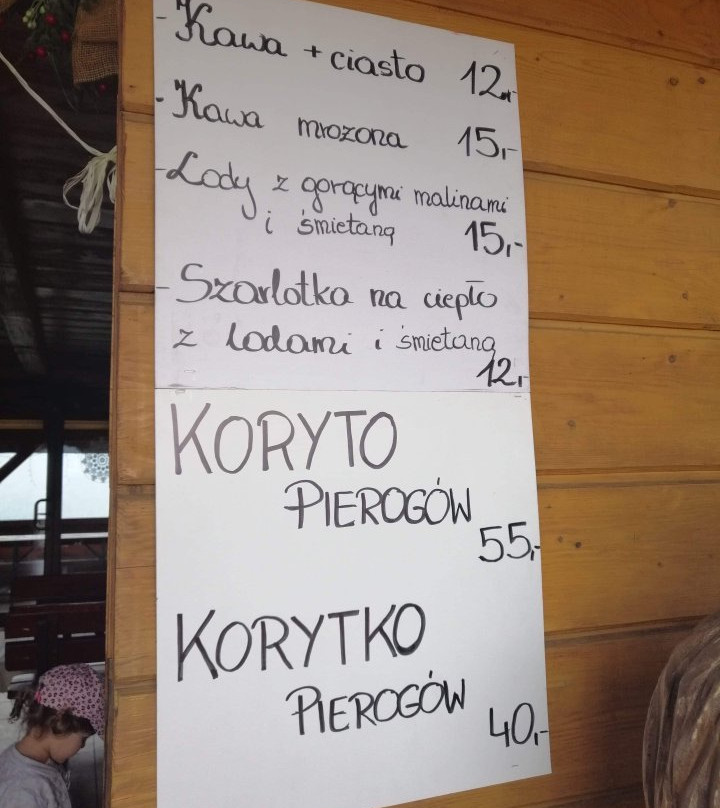 - Kawa + ciasto 12,-
- Kawa mrożona 15,-
- Lody z gorącymi malinami
i śmietaną 15,-
- Szarlotka na ciepło
z lodami i śmietaną
12,-
KORYTO
PIEROGÓW
55,-
KORYTKO
PIEROGÓW
40,-